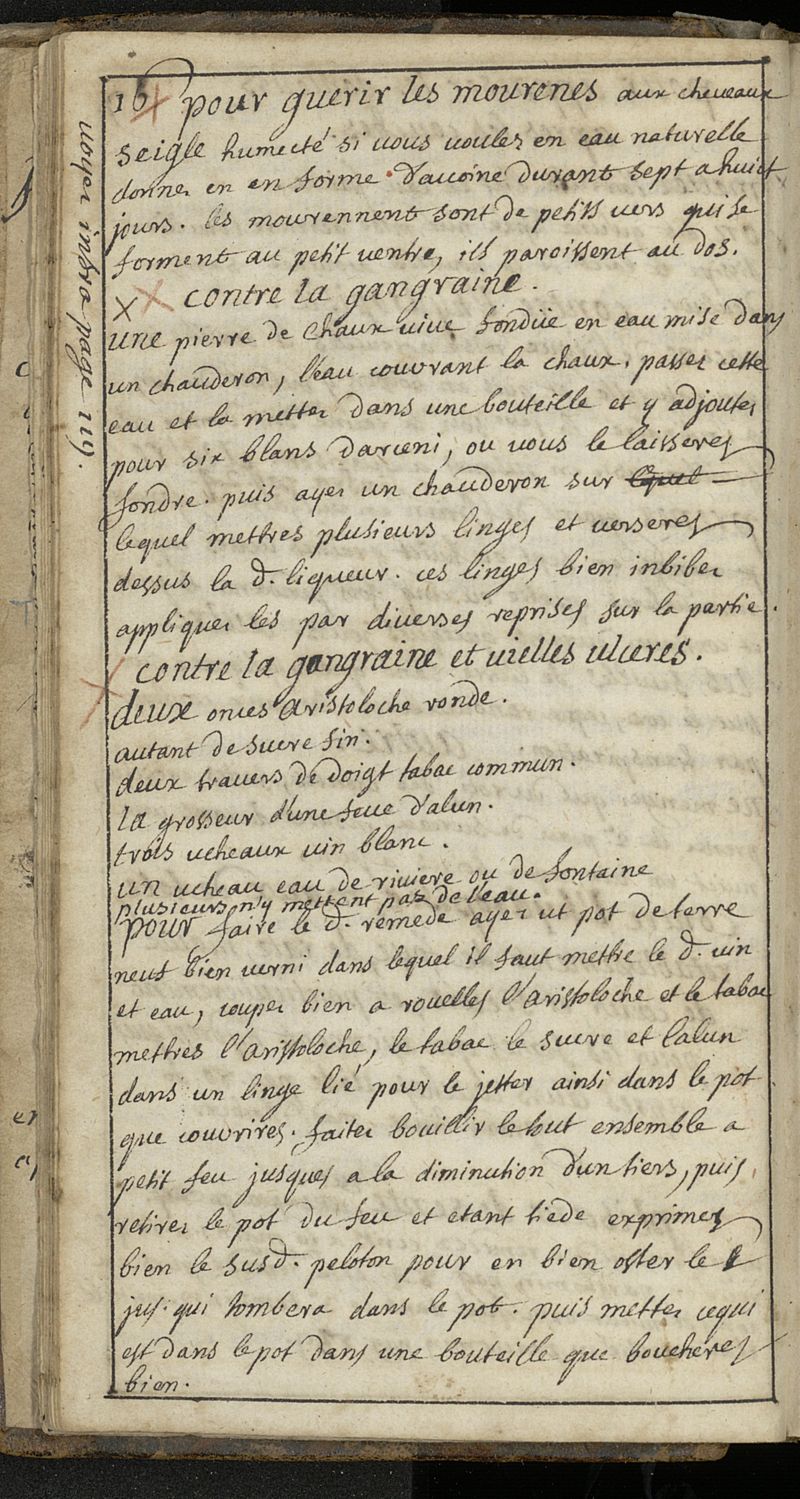 16 pour guerir les mourenes aux cheveaux
seigle humecté si vous voules en eau naturelle
donnes en en forme d'avoine durant sept a huict
jours. les mourennent sont de petits vers qui se
forment au petit ventre, ils paroissent au dos.
contre la gangraine.
une pierre de chaux vive fondüe en eau mise dans
un chauderon, l'eau couvrant la chaux. passes cette
eau et la mettes dans une bouteille et y adjoutes
pour six blans d'arceni, ou vous le laisseres
fondre. puis ayes un chauderon sur lequel
lequel mettres plusieurs linges et verseres
dessus la d. liqueur. ces linges bien inbibes
appliques les par diverses reprises sur la partie.
contre la gangraine et vielles ulceres.
deux onces aristoloche ronde.
autant de sucre fin.
deux travers de doigt tabac commun.
la grosseur d'une feve d'alun.
trois ucheaux vin blanc.
un ucheau eau de riviere ou de fontaine
plusieurs n'y mettent pas de l'eau.
pour faire le d. remede ayes ut pot de terre
neuf bien verni dans lequel il faut mettre le d. vin
et eau, coupes bien a rouelles l'aristoloche et le tabac
mettres l'aristoloche, le tabac le sucre et l'alun
dans un linge lié pour le jetter ainsi dans le pot
que couvrires. faites bouillir le tout ensemble a
petit feu jusques a la diminution d'un tiers, puis
retires le pot du feu et etant tiede exprimes
bien le susd. peloton pour en bien oster le
jus. qui tombera dans le pot. puis mettes cequi
est dans le pot dans une bouteille que boucheres
bien.
voyes infra page 119.